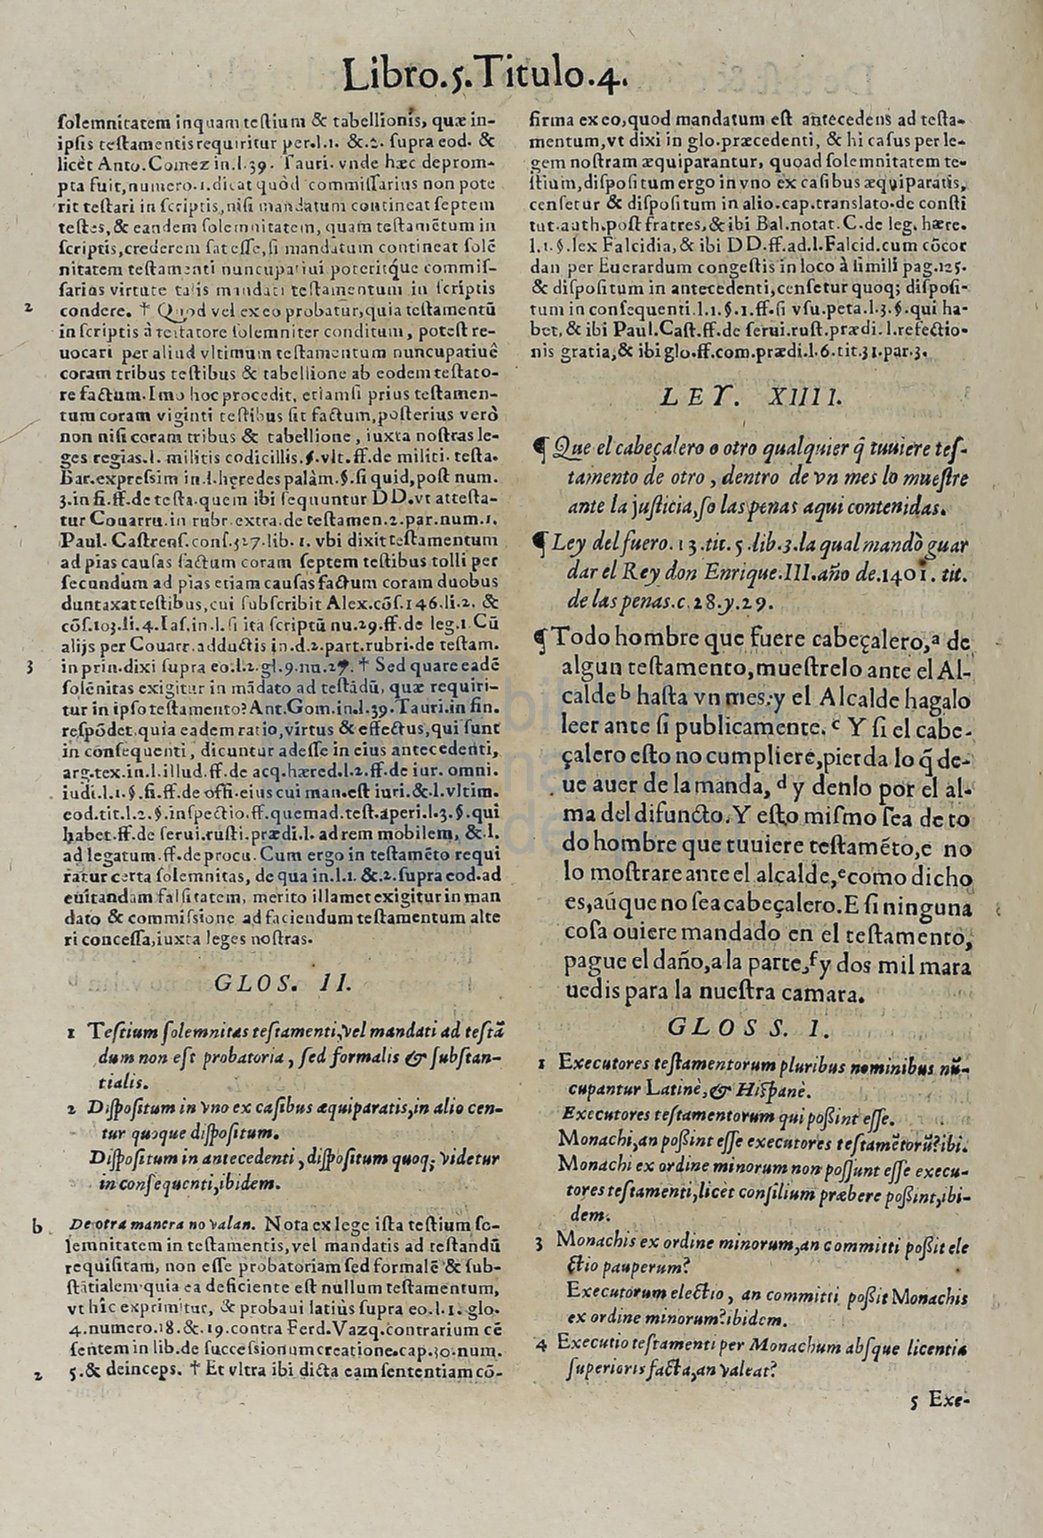 Libro.5.Titulo.4.
ſolemnitatem inquam teſtium & tabellionis, quæ in-
ipſis teſtamentis requiritur per.l.1. &.2. ſupra eod. &
licèt Anto.Gomez in.l.39. Tauri. vnde hæc deprom-
pta fuit,numero.1.dicat quòd commiſſarius non pote
rit teſtari in ſcriptis,niſi mandatum contineat ſeptem
teſtes,& eandem ſolemnitatem, quam teſtamẽtum in
ſcriptis,crederem ſat eſſe,ſi mandatum contineat ſolẽ
nitatem teſtamenti nuncupatiui poteritq́ue commiſ-
ſarius virtute talis mandati teſtamentum in ſcriptis
2 condere. † Quod vel ex eo probatur,quia teſtamentũ
in ſcriptis à teſtatore ſolemniter conditum, poteſt re-
uocari per aliud vltimum teſtamentum nuncupatiuẽ
coram tribus teſtibus & tabellione ab eodem teſtato-
re factum.Imo hoc procedit, etiamſi prius teſtamen-
tum coram viginti teſtibus ſit factum,poſterius verò
non niſi coram tribus & tabellione, iuxta noſtras le-
ges regias.l. militis codicillis.§.vlt.ff.de militi. teſta.
Bar.expreſsim in.l.hęredes palàm.§.ſi quid,poſt num.
3.in fi.ff.de teſta.quem ibi ſequuntur DD.vt atteſta-
tur Couarru.in rubr.extra.de teſtamen.2.par.num.1.
Paul. Caſtrenſ.conſ.327.lib. 1. vbi dixit teſtamentum
ad pias cauſas factum coram ſeptem teſtibus tolli per
ſecundum ad pias etiam cauſas factum coram duobus
duntaxat teſtibus,cui ſubſcribit Alex.cõſ.146.li.2. &
cõſ.103.li.4.Iaſ.in.l.ſi ita ſcriptũ nu.29.ff.de leg.1.Cũ
alijs per Couarr.adductis in.d.2.part.rubri.de teſtam.
3 in prin.dixi ſupra eo.l.2.gl.9.nu.27. † Sed quare eadẽ
ſolẽnitas exigitur in mãdato ad teſtãdũ, quæ requiri-
tur in ipſo teſtamento? Ant.Gom.in.l.39.Tauri.in fin.
reſpõdet.quia eadem ratio,virtus & effectus,qui ſunt
in conſequenti, dicuntur adeſſe in eius antecedenti,
arg.tex.in.l.illud.ff.de acq.hæred.l.2.ff.de iur. omni.
iudi.l.1.§.fi.ff.de offi.eius cui man.eſt iuri.&.l.vltim.
eod.tit.l.2.§.inſpectio.ff.quemad.teſt.aperi.l.3.§.qui
habet.ff.de ſerui.ruſti.prædi.l.ad rem mobilem, &.l.
ad legatum.ff.de procu.Cum ergo in teſtamẽto requi
ratur certa ſolemnitas, de qua in.l.1. &.2.ſupra eod.ad
euitandam falſitatem, merito illamet exigitur in man
dato & commiſsione ad faciendum teſtamentum alte
ri conceſſa,iuxta leges noſtras.
GLOS. II.
1 Teſtium ſolemnitas teſtamenti,vel mandati ad teſtã
dum non eſt probatoria, ſed formalis & ſubſtan-
tialis.
2 Diſpoſitum in vno ex caſibus æquiparatis,in alio cen-
tur quoque diſpoſitum.
Diſpoſitum in antecedenti,diſpoſitum quoq; videtur
in conſequenti,ibidem.
b De otra manera no valan. Nota ex lege iſta teſtium ſo-
lemnitatem in teſtamentis,vel mandatis ad teſtandũ
requiſitam, non eſſe probatoriam ſed formalẽ & ſub-
ſtãtialem.quia ea deficiente eſt nullum teſtamentum,
vt hic exprimitur, & probaui latiùs ſupra eo.l.1.glo.
4.numero.18.&.19.contra Ferd.Vazq.contrarium cẽ
ſentem in lib.de ſucceſsionum creatione.cap.30.num.
2 5.& deinceps. † Et vltra ibi dicta eam ſententiam cõ-
firma ex eo,quod mandatum eſt antecedens ad teſta-
mentum,vt dixi in glo.præcedenti, & hi caſus per le-
gem noſtram æquiparantur, quoad ſolemnitatem te-
ſtium,diſpoſitum ergo in vno ex caſibus æquiparatis,
cenſetur & diſpoſitum in alio.cap.translato.de conſti
tut.auth.poſt fratres,& ibi Bal.notat.C.de leg.hære.
l.1.§.lex Falcidia,& ibi DD.ff.ad.l.Falcid.cum cõcor
dan per Euerardum congeſtis in loco à ſimili pag.125.
& diſpoſitum in antecedenti,cenſetur quoq; diſpoſi-
tum in conſequenti.l.1.§.1.ff.ſi vſu.peta.l.3.§.qui ha-
bet,& ibi Paul.Caſt.ff.de ſerui.ruſt.prædi.l.refectio-
nis gratia,& ibi glo.ff.com.prædi.l.6.tit.31.par.3.
LEY. XIIII.
¶ Que el cabeçalero o otro qualquier q̃ tuuiere teſ-
tamento de otro, dentro de vn mes lo mueſtre
ante la juſticia,ſo las penas aqui contenidas.
¶ Ley del fuero.13.tit.5.lib.3.la qual mandò guar
dar el Rey don Enrique.III.año de.1401. tit.
de las penas.c.28.y.29.
¶ Todo hombre que fuere cabeçalero,ª de
algun teſtamento,mueſtrelo ante el Al-
calde ᵇ haſta vn mes:y el Alcalde hagalo
leer ante ſi publicamente. ᶜ Y ſi el cabe-
çalero eſto no cumpliere,pierda lo q̃ de-
ue auer de la manda, ᵈ y denlo por el al-
ma del difuncto.Y eſto miſmo ſea de to
do hombre que tuuiere teſtamẽto,e no
lo moſtrare ante el alcalde,ᵉcomo dicho
es,aũque no ſea cabeçalero.E ſi ninguna
coſa ouiere mandado en el teſtamento,
pague el daño,a la parte,ᶠy dos mil mara
uedis para la nueſtra camara.
GLOSS. I.
1 Executores teſtamentorum pluribus nominibus nũ-
cupantur Latinè,& Hiſpanè.
Executores teſtamentorum qui poßint eſſe.
Monachi,an poßint eſſe executores teſtamẽtorũ?ibi.
Monachi ex ordine minorum non poſſunt eſſe execu-
tores teſtamenti,licèt conſilium præbere poßint,ibi-
dem.
3 Monachis ex ordine minorum,an committi poßit ele
ctio pauperum?
Executorum electio, an committi poßit Monachis
ex ordine minorum?ibidem.
4 Executio teſtamenti per Monachum abſque licentia
ſuperioris facta,an valeat?
5 Exe-